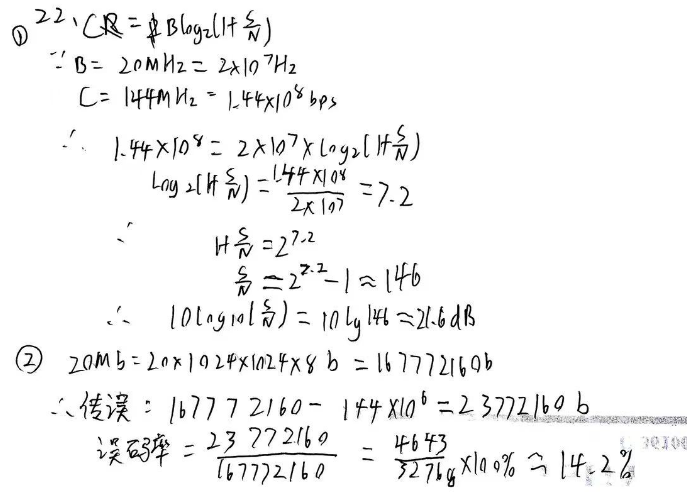 ① 22、C = Blog₂(1+S/N)
∵ B = 20MHz = 2×10⁷Hz
C = 144MHz = 1.44×10⁸bps
∴ 1.44×10⁸ = 2×10⁷×Log₂(1+S/N)
Log₂(1+S/N) = 1.44×10⁸/2×10⁷ = 7.2
∴ 1+S/N = 2^7.2
S/N = 2^7.2 - 1 ≈ 146
∴ 10log10(S/N) = 10lg146 ≈ 21.6dB
② 20Mb = 20×1024×1024×8b = 167772160b
∴ 传误: 167772160 - 144×10⁶ = 23772160b
误码率 = 23772160/167772160 = 4643/32768 ×100% ≈ 14.2%